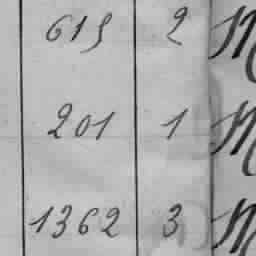 615 2 M
201 1 M
1362 3 M